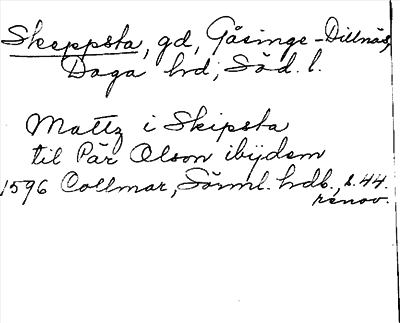 Skeppsta, gd, Gåsinge-Dillnäs,
Daga hd; Söd. l.
Mattz i Skipsta
til Pär Olson ibijdem
1596 Collmar, Sörml. hdb., s. 44.
renov.